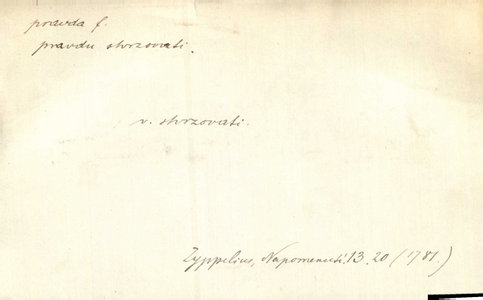 pravda f.
pravdu stvrzovati.
v. stvrzovati.
Zyppelius, Napomenutí 13. 20 (1781.)